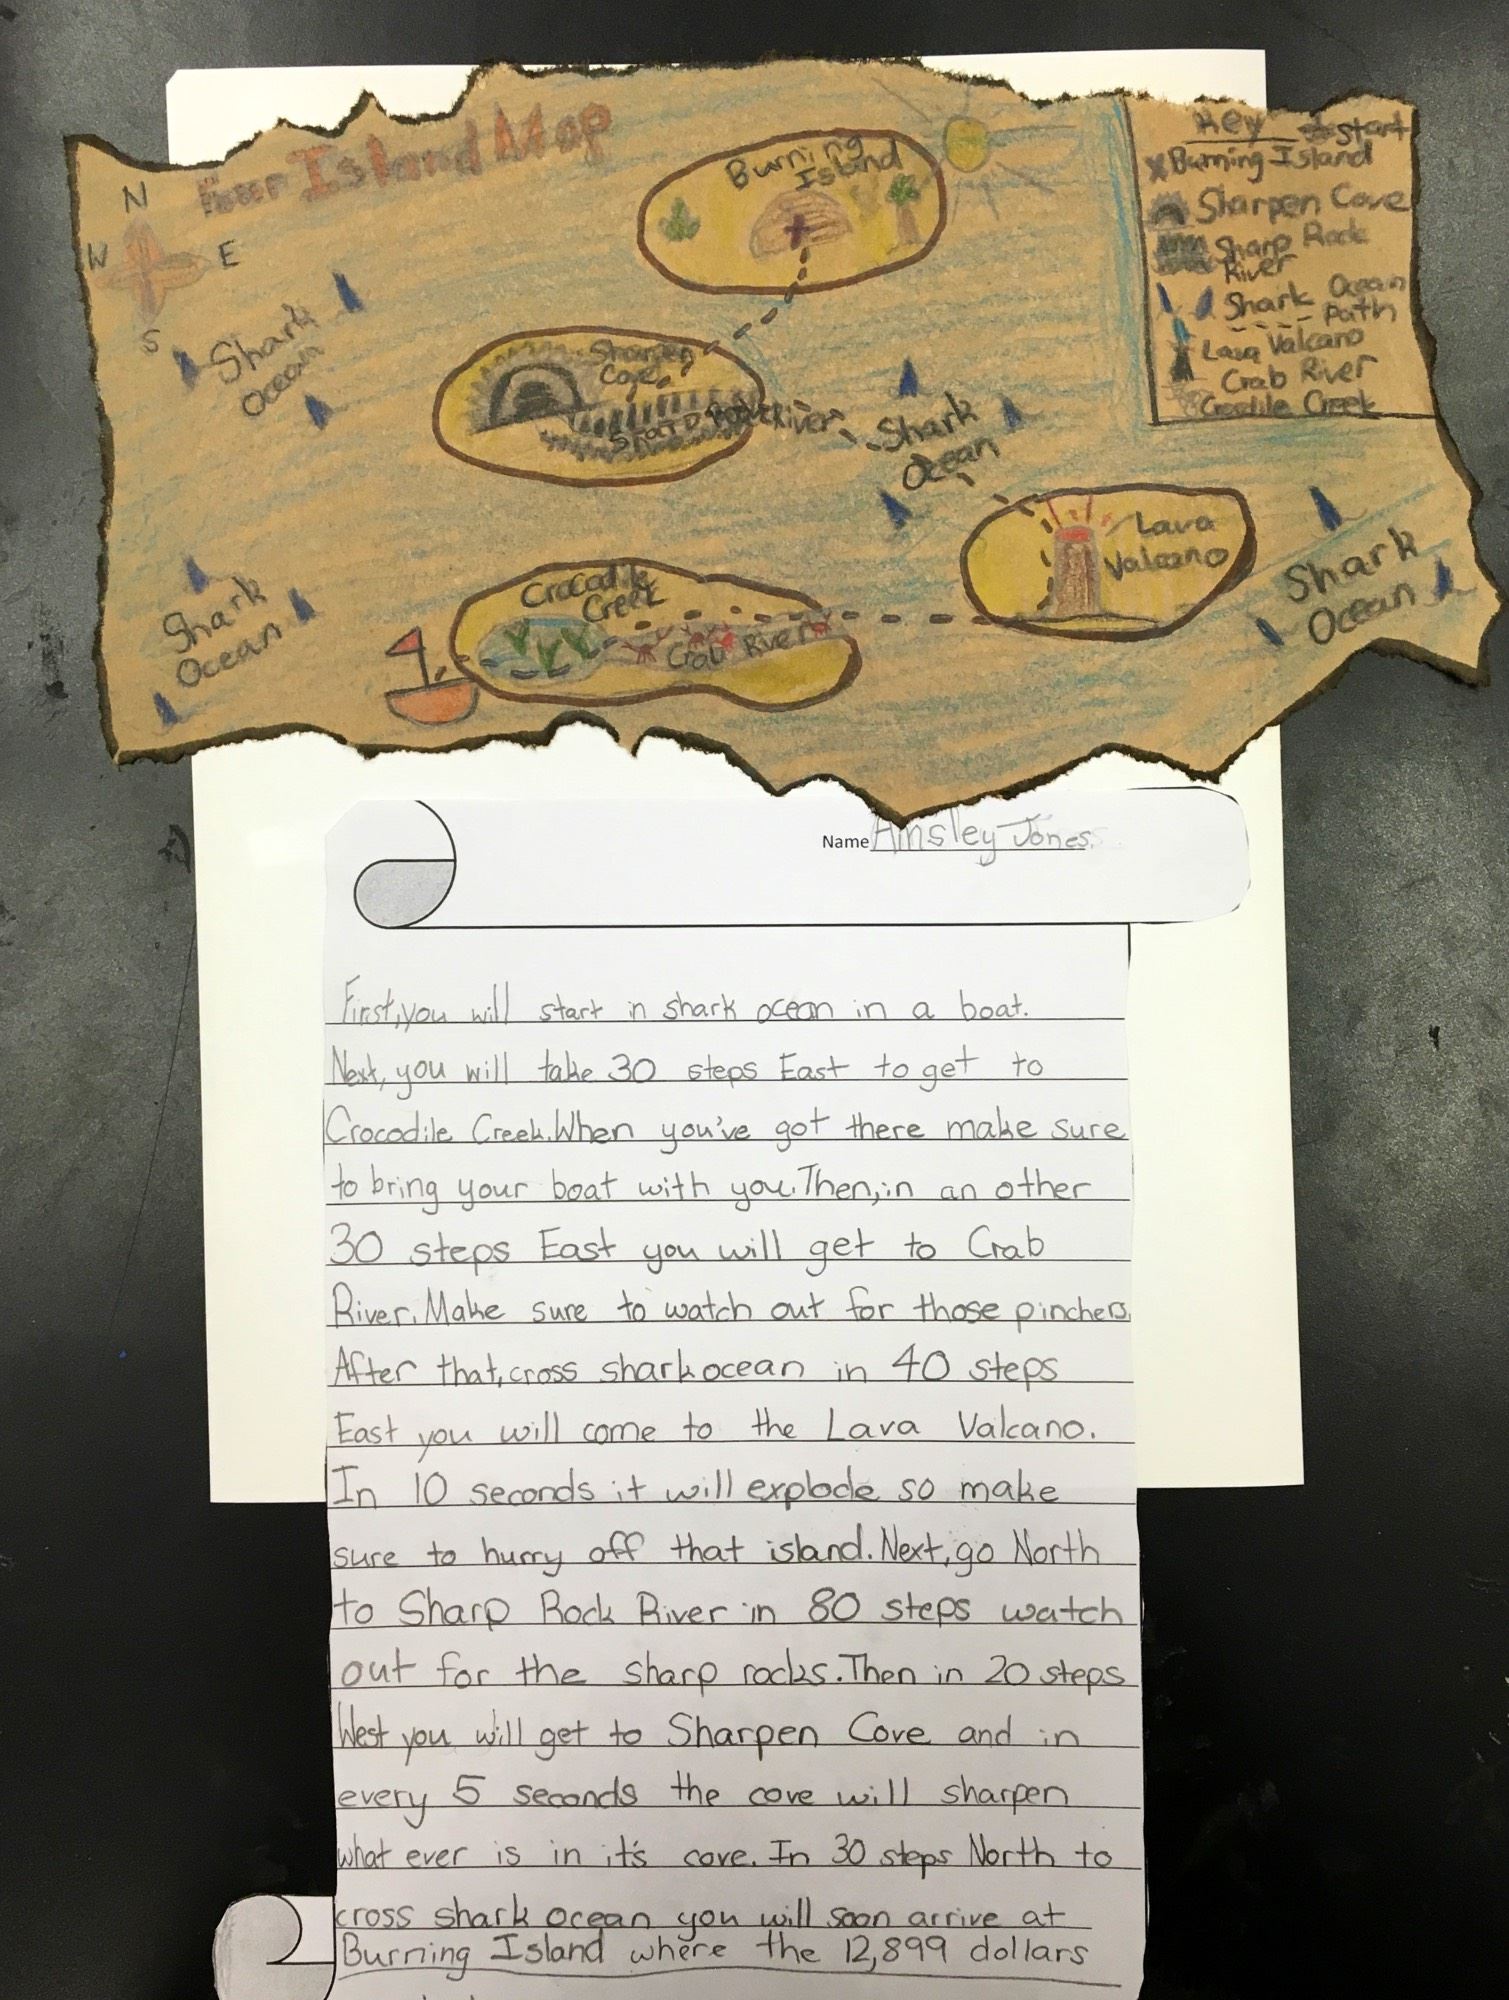 Four Island Map
N
W
E
S
Burning
Island
Key
start
Burning Island
Sharpen Cove
Sharp Rock
River
Shark Ocean
Path
Lava Valcano
Crab River
Crocdile Creek
Shark
Ocean
Sharpen
Cove
Sharp Rock River
Shark
Ocean
Lava
Valcano
Shark
Ocean
Crocadile
Creek
Crab River
Shark
Ocean
Name Ainsley Jones
First, you will start in shark ocean in a boat.
Next, you will take 30 steps East to get to
Crocodile Creek. When you've got there make sure
to bring your boat with you. Then, in an other
30 steps East you will get to Crab
River. Make sure to watch out for those pinchers.
After that, cross shark ocean in 40 steps
East you will come to the Lava Valcano.
In 10 seconds it will explode so make
sure to hurry off that island. Next, go North
to Sharp Rock River in 80 steps watch
out for the sharp rocks. Then in 20 steps
West you will get to Sharpen Cove and in
every 5 seconds the cove will sharpen
what ever is in it's cove. In 30 steps North to
cross shark ocean you will soon arrive at
Burning Island where the 12,899 dollars